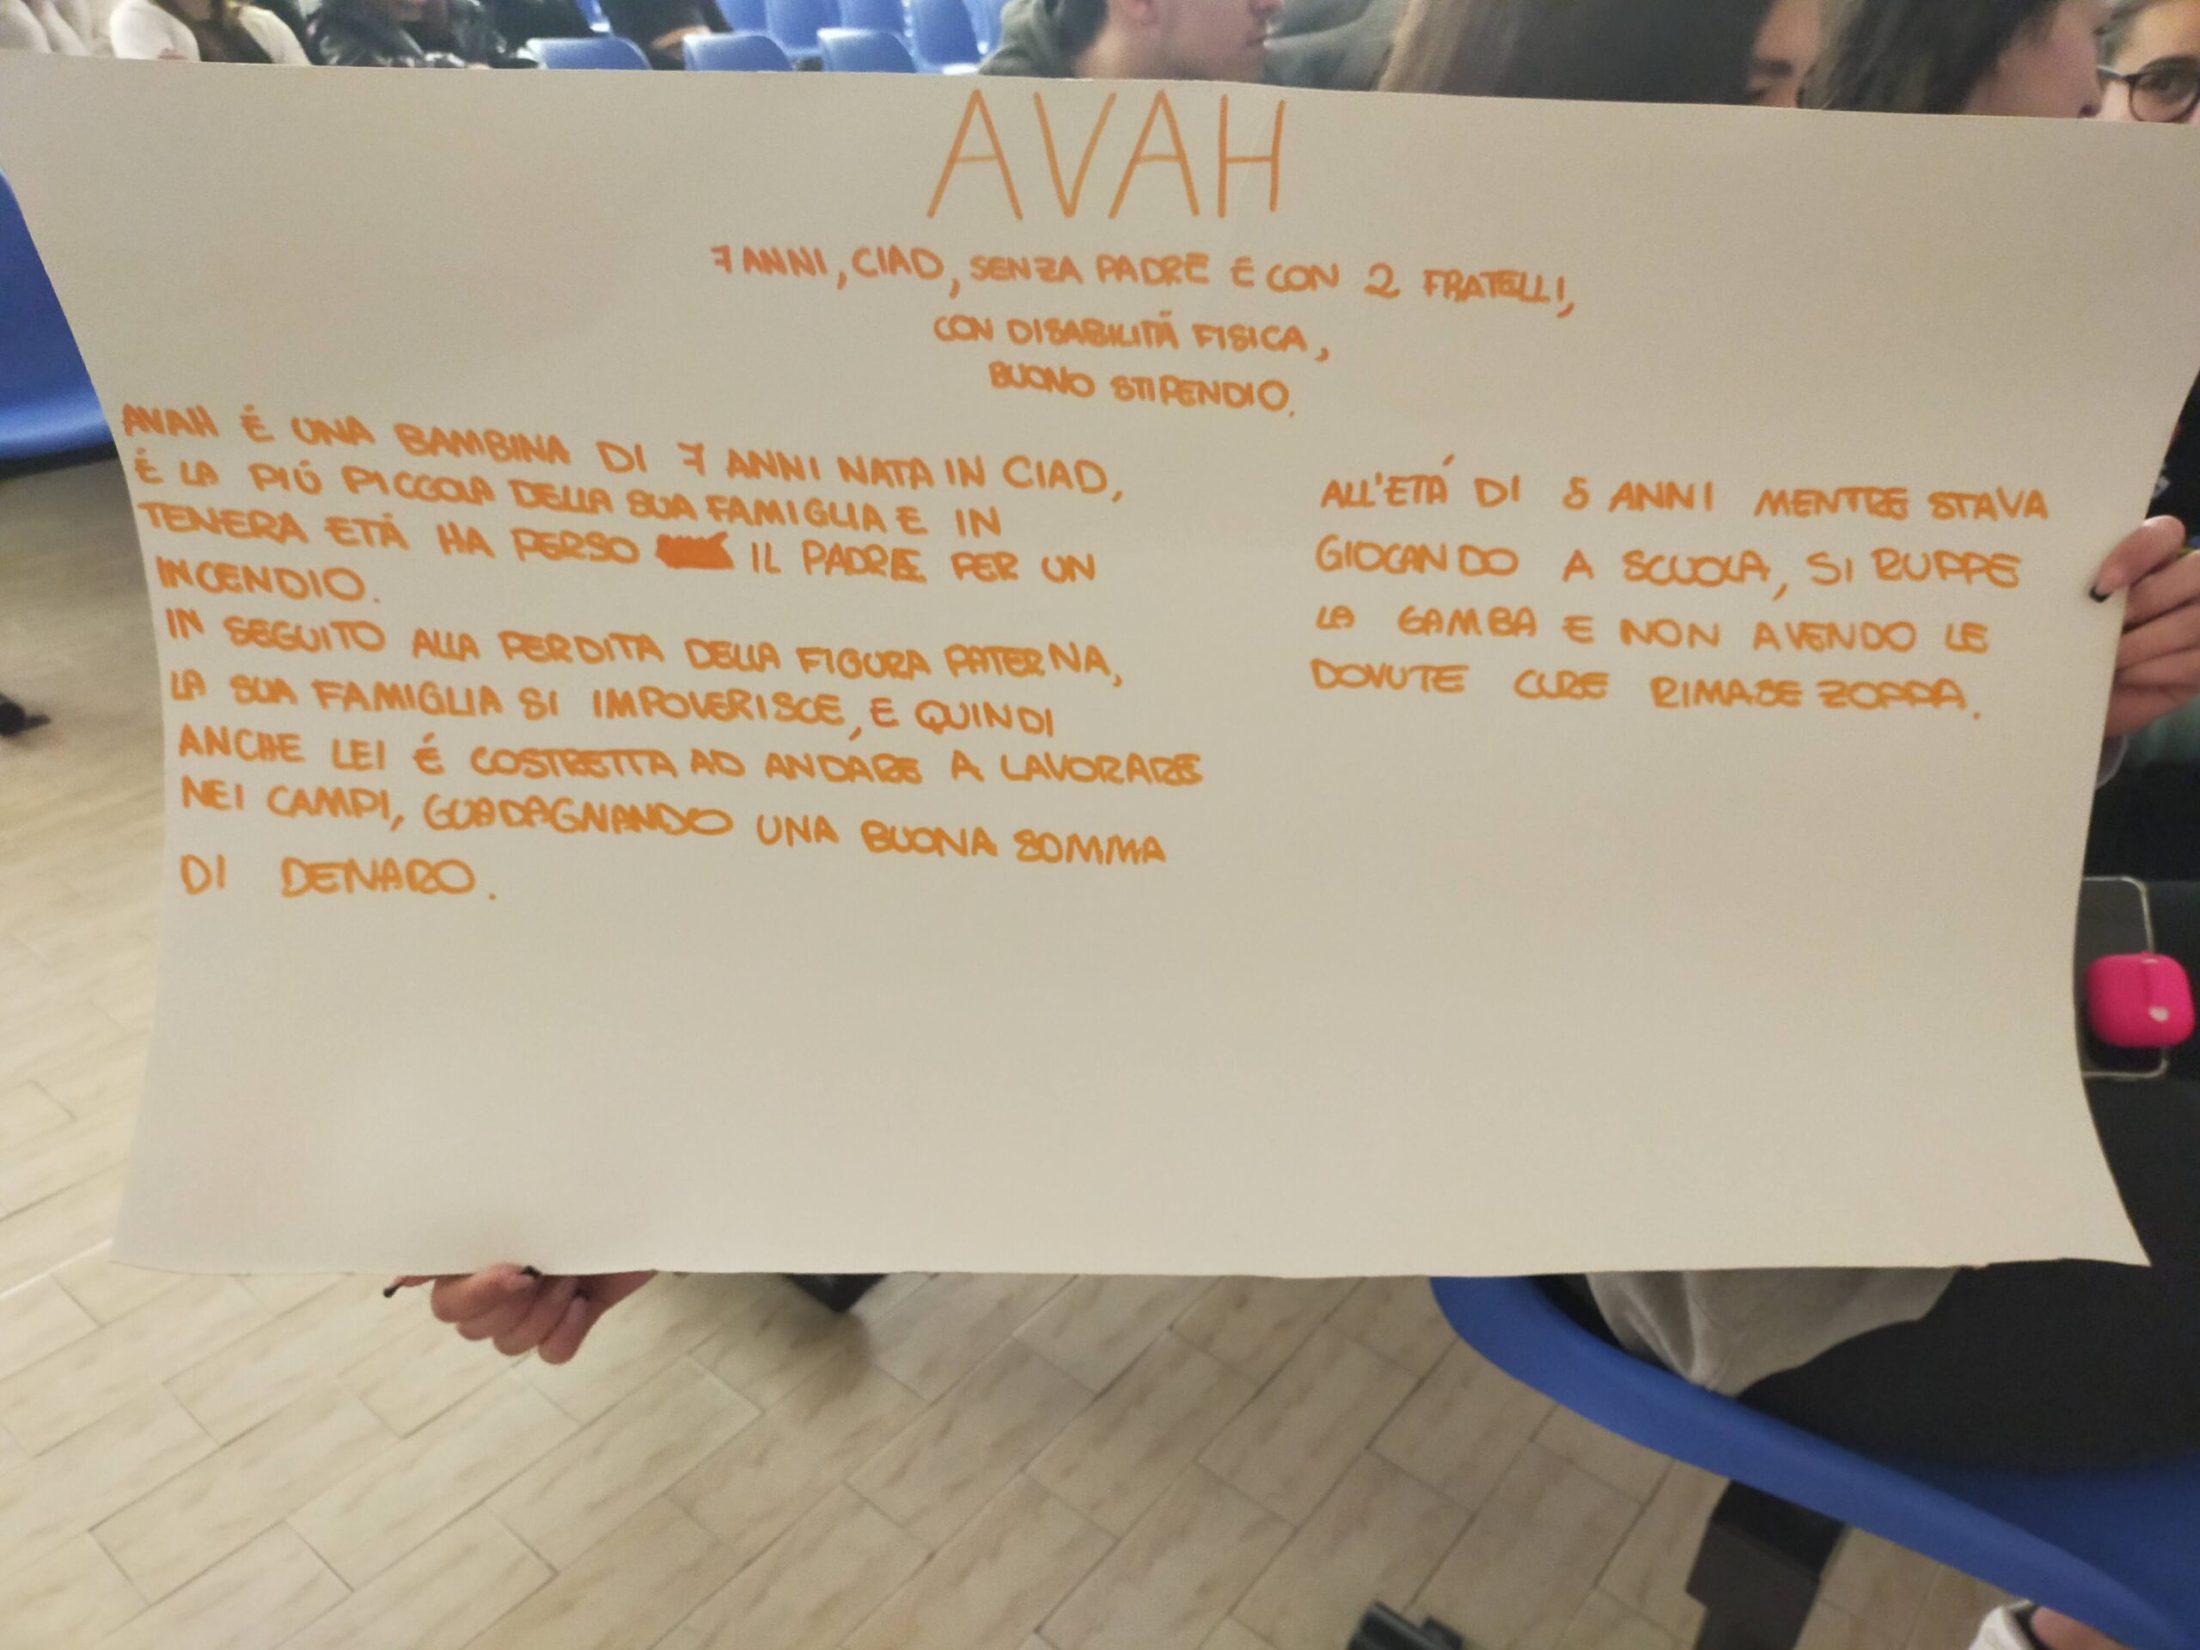 AVAH
7 ANNI, CIAD, SENZA PADRE E CON 2 FRATELLI,
CON DISABILITÁ FISICA,
BUONO STIPENDIO.
AVAH É UNA BAMBINA DI 7 ANNI NATA IN CIAD,
É LA PIÚ PICCOLA DELLA SUA FAMIGLIA E IN
TENERA ETÁ HA PERSO IL PADRE PER UN
INCENDIO.
IN SEGUITO ALLA PERDITA DELLA FIGURA PATERNA,
LA SUA FAMIGLIA SI IMPOVERISCE, E QUINDI
ANCHE LEI É COSTRETTA AD ANDARE A LAVORARE
NEI CAMPI, GUADAGNANDO UNA BUONA SOMMA
DI DENARO.
ALL'ETÁ DI 5 ANNI MENTRE STAVA
GIOCANDO A SCUOLA, SI RUPPE
LA GAMBA E NON AVENDO LE
DOVUTE CURE RIMASE ZOPPA.